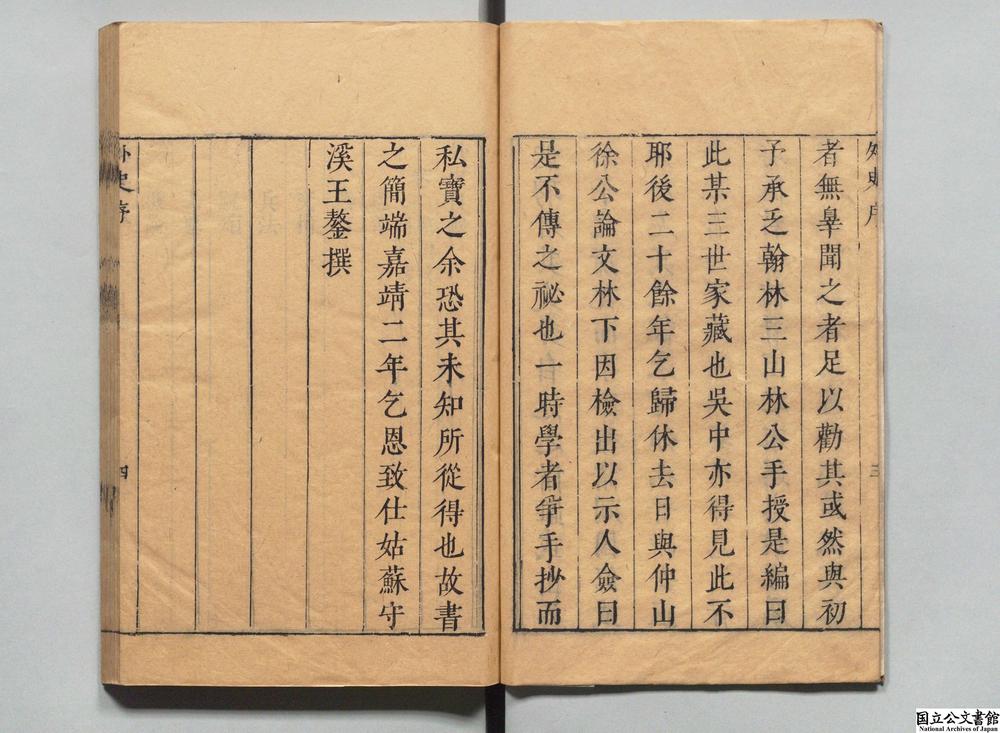 外史序
三
者無辠聞之者足以勸其或然與初
予承乏翰林三山林公手授是編曰
此某三世家藏也吳中亦得見此不
耶後二十餘年乞歸休去日與仲山
徐公論文林下因檢出以示人僉曰
是不傳之祕也一時學者爭手抄而
私寶之余恐其未知所從得也故書
之簡端嘉靖二年乞恩致仕姑蘇守
溪王鏊撰
外史序
四
国立公文書館
National Archives of Japan